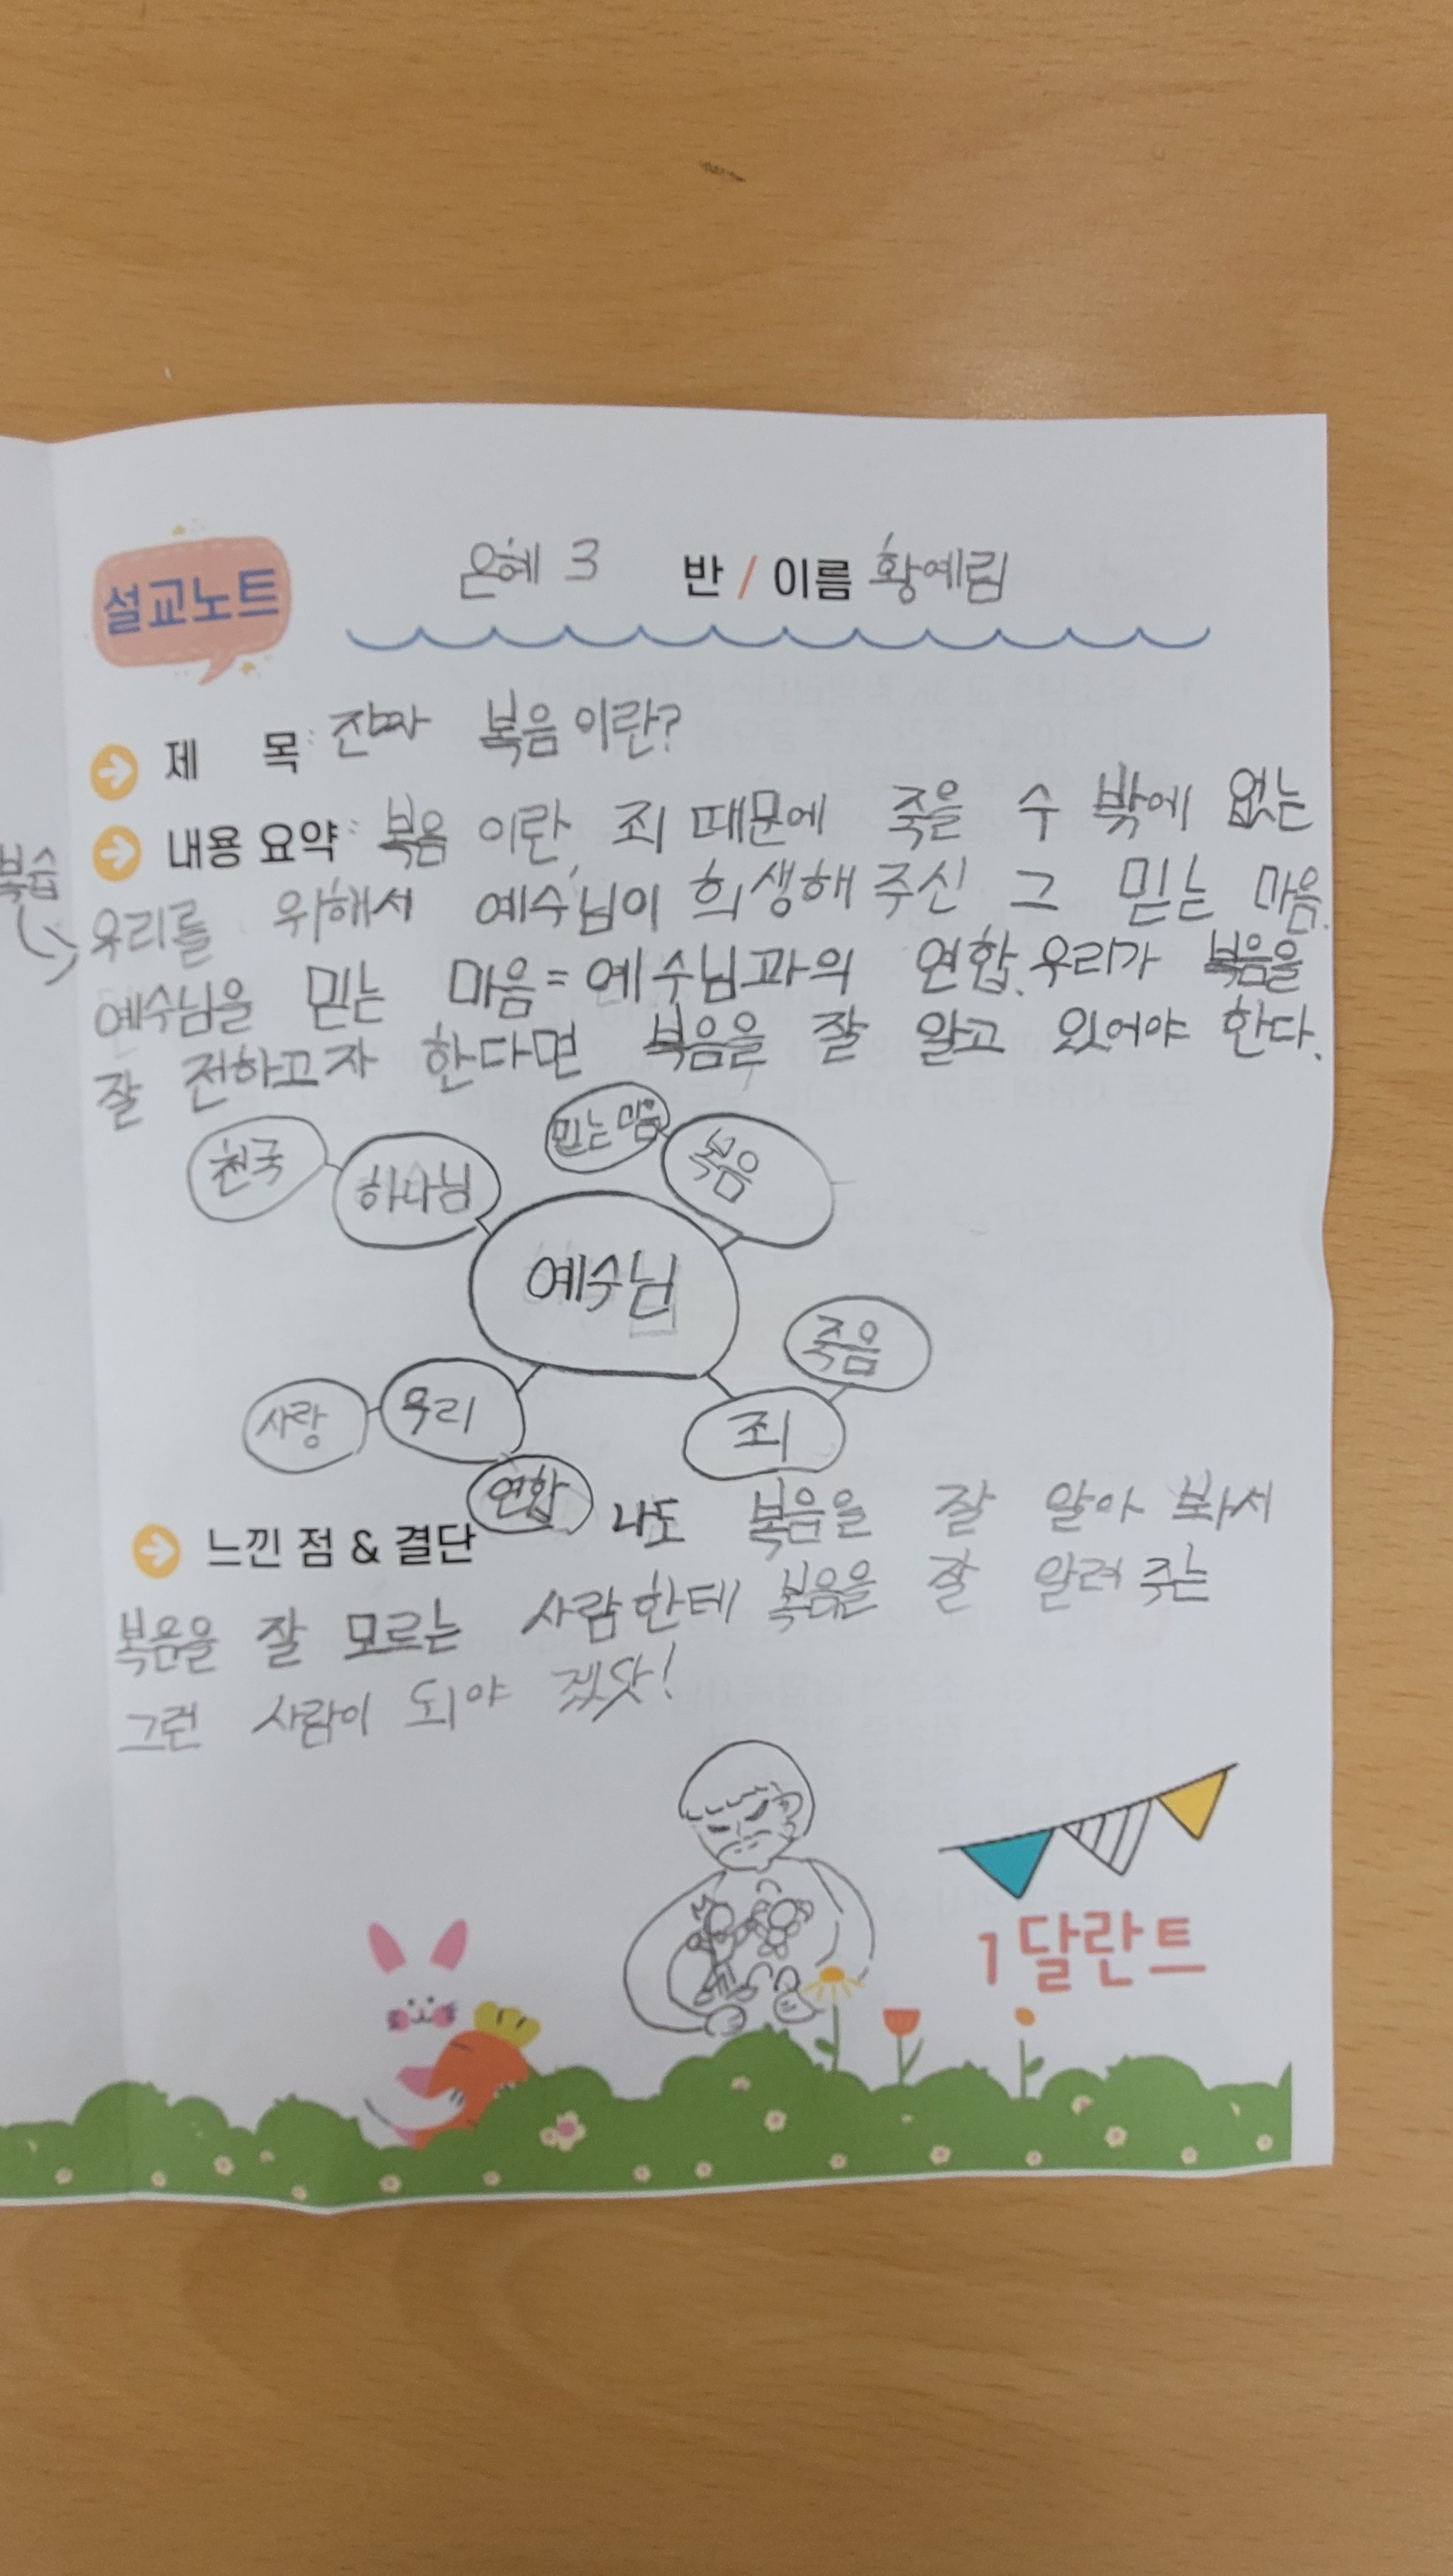 설교노트
은혜 3 반 / 이름 황예림
제 목: 진짜 복음이란?
내용 요약: 복음 이란, 죄 때문에 죽을 수 밖에 없는
복습
우리를 위해서 예수님이 희생해 주신 그 믿는 마음.
예수님을 믿는 마음 = 예수님과의 연합. 우리가 복음을
잘 전하고자 한다면 복음을 잘 알고 있어야 한다.
믿는 마음
천국 하나님 복음
예수님
죽음
사랑 우리 죄
연합
느낀 점 & 결단 나도 복음을 잘 알아 봐서
복음을 잘 모르는 사람한테 복음을 잘 알려 주는
그런 사람이 되야 겠닷!
1달란트